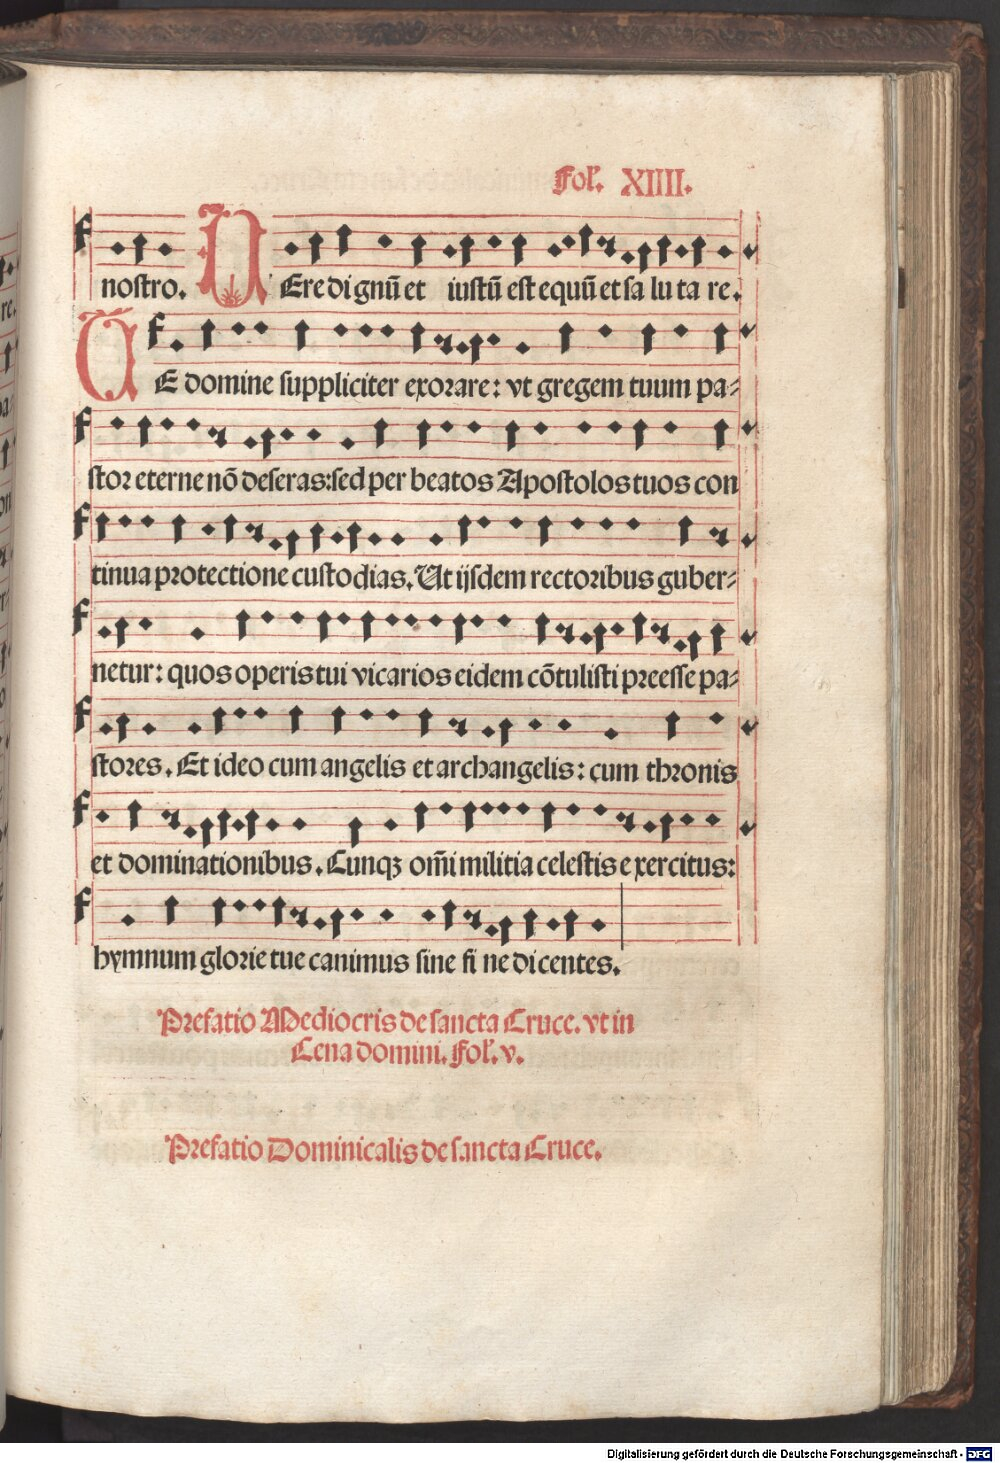 Fol. XIIII.
nostro. VEre dignū et iustū est equū et salutare.
TE domine suppliciter exorare: vt gregem tuum pa-
stor eterne nō deseras: sed per beatos Apostolos tuos con
tinua protectione custodias. Ut ijsdem rectoribus guber-
netur: quos operis tui vicarios eidem cōtulisti preesse pa-
stores. Et ideo cum angelis et archangelis: cum thronis
et dominationibus. Cunqꝫ om̄i militia celestis exercitus:
hymnum glorie tue canimus sine fine dicentes.
Prefatio Mediocris de sancta Cruce. vt in
Cena domini. Fol. v.
Prefatio Dominicalis de sancta Cruce.
Digitalisierung gefördert durch die Deutsche Forschungsgemeinschaft - DFG